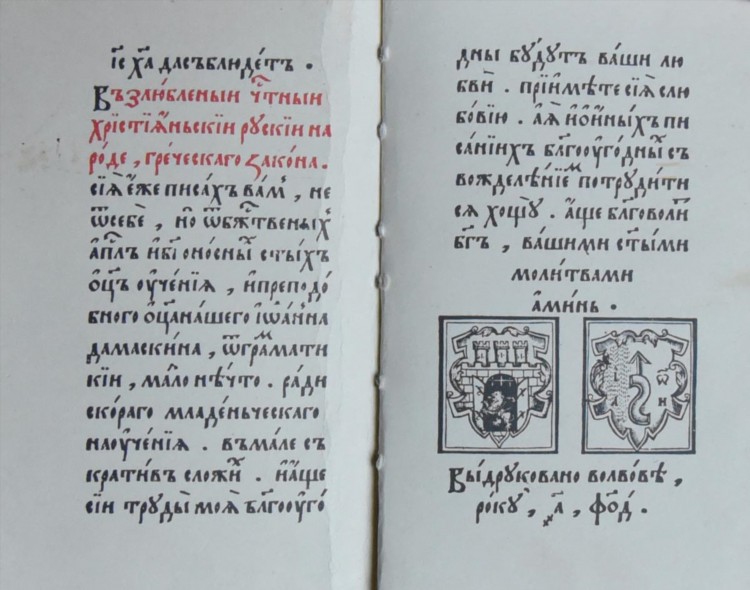 і҃с х҃а дасъблюдетъ .
Възлюбленыи ч҃тныи
хрістїѧ́ньскїи рускїи на
ро́де , гре́ческаго зако́на .
сїѧ̀ е́же писа́хъ ва́мъ , не
ѿсебѐ , но ѿбж҃твеныхъ
а҆пл҃ъ и҆бг҃оно́сныⷯ ст҃ы́хъ
ѻ҆ц҃ъ ѹ҆че́нїѧ , и҆преподо́
бного ѻ҆ц҃ана́шего і҆ѡа́нна
дамаски́на , ѿгра́маⷨати
кїи , ма́ло нѣ́что . ра́ди
ско́раго младе́ньческаго
наѹче́нїѧ . въма́ле съ
крати́въ сложи́ⷯ . и҆а҆́ще
сїи труды̀ моѧ̀ бл҃гоѹ҆го́
дны бу́дутъ ва́ши лю
бвѝ . прїи҆мѣ́те сїѧ̀ слю
бо́вїю . а҆́зъ и҆ѡ҆и́ныхъ пи
са́нїихъ бл҃гоѹ҆го́дныⷯ съ
вожделѣ́нїеⷨ потруди́ти
сѧ хощу̀ . а҆́ще бл҃говоли́тъ
бг҃ъ , ва́шими ст҃ы́ми
моли́твами
а҆ми́нь .
І
А
Ѡ
Н
Вы́друковано вольво́вѣ ,
ро́ку , ҂а҃ , ф҃о́д .